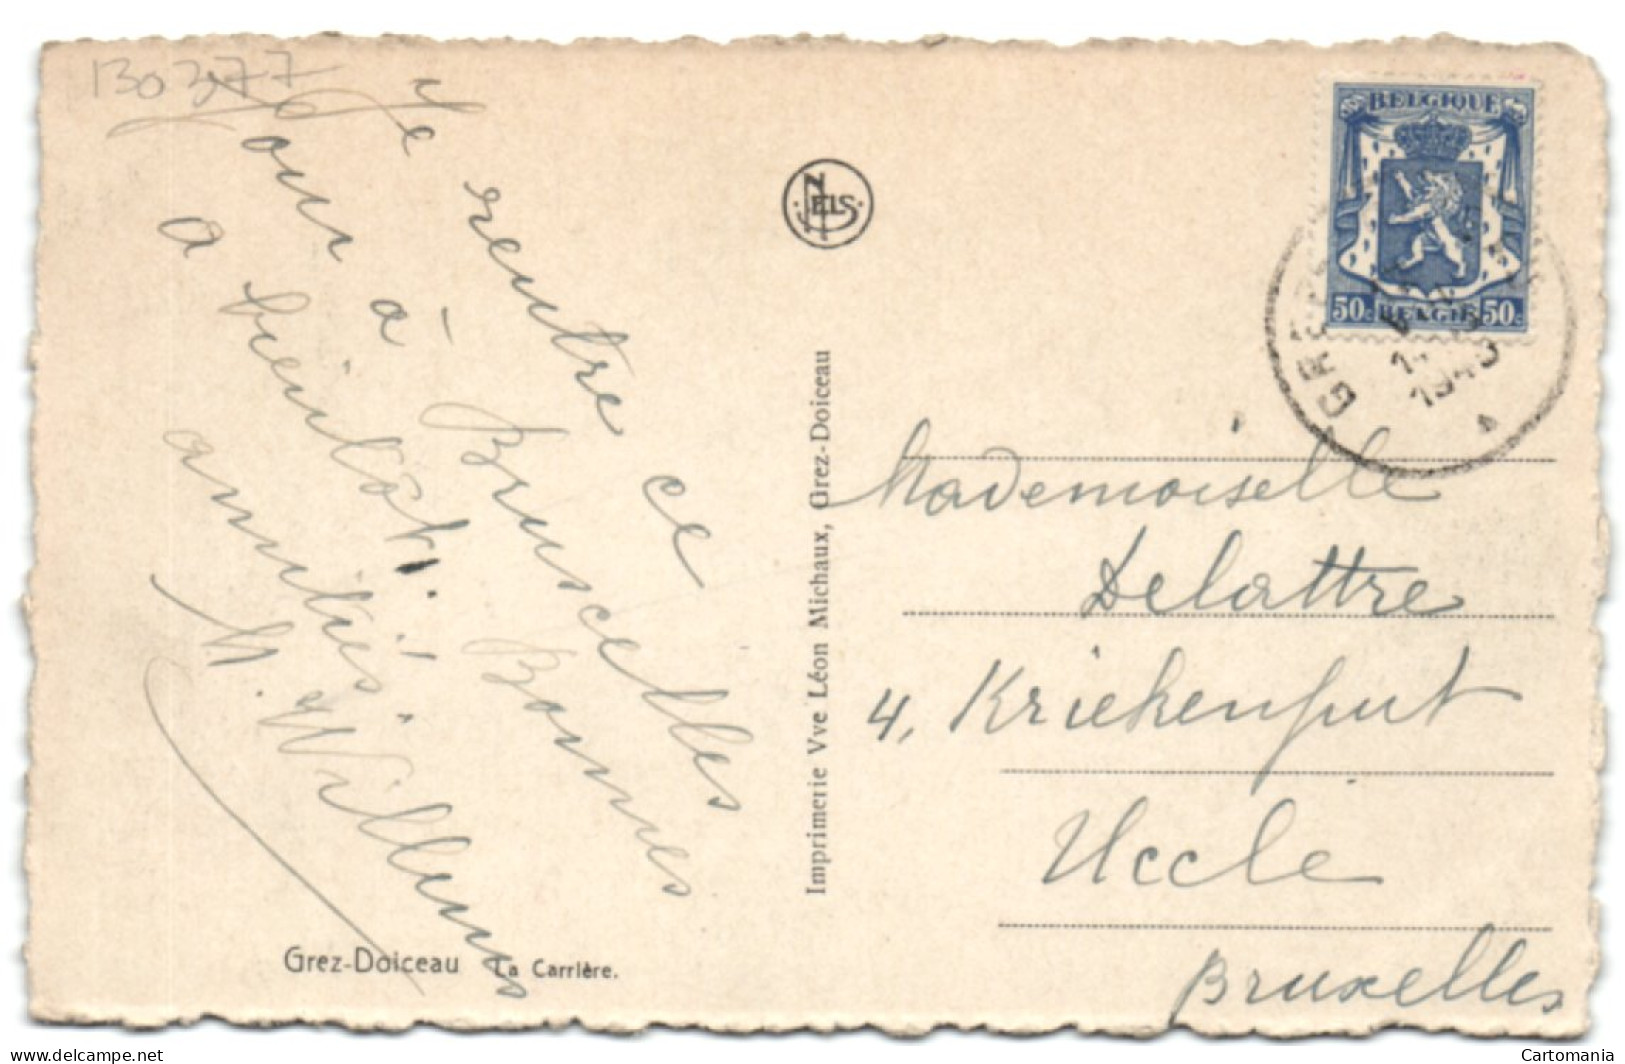 130277
Je rentre ce
jour à Bruxelles
a bientôt. Bonnes
amitiés.
M. Willems
Grez-Doiceau La Carrière.
NELS
Imprimerie Vve Léon Michaux, Grez-Doiceau
BELGIQUE
50c BELGIE 50c
GREZ
Mademoiselle
Delattre
4, Kriekenput
Uccle
Bruxelles
delcampe.net
Cartomania